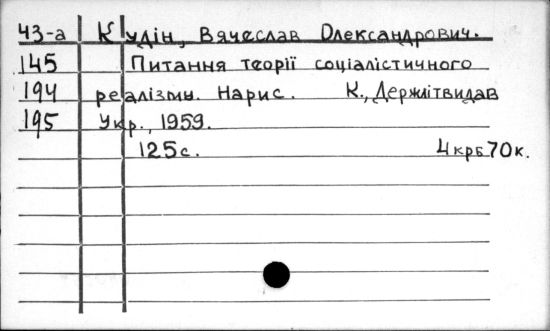 43-а Кудін, Вячеслав Олександрович.
145 Питання теорії соціалістичного
194 реалізму. Нарис. К., Держлітвидав
195 Укр., 1959.
125с. 4крб70к.